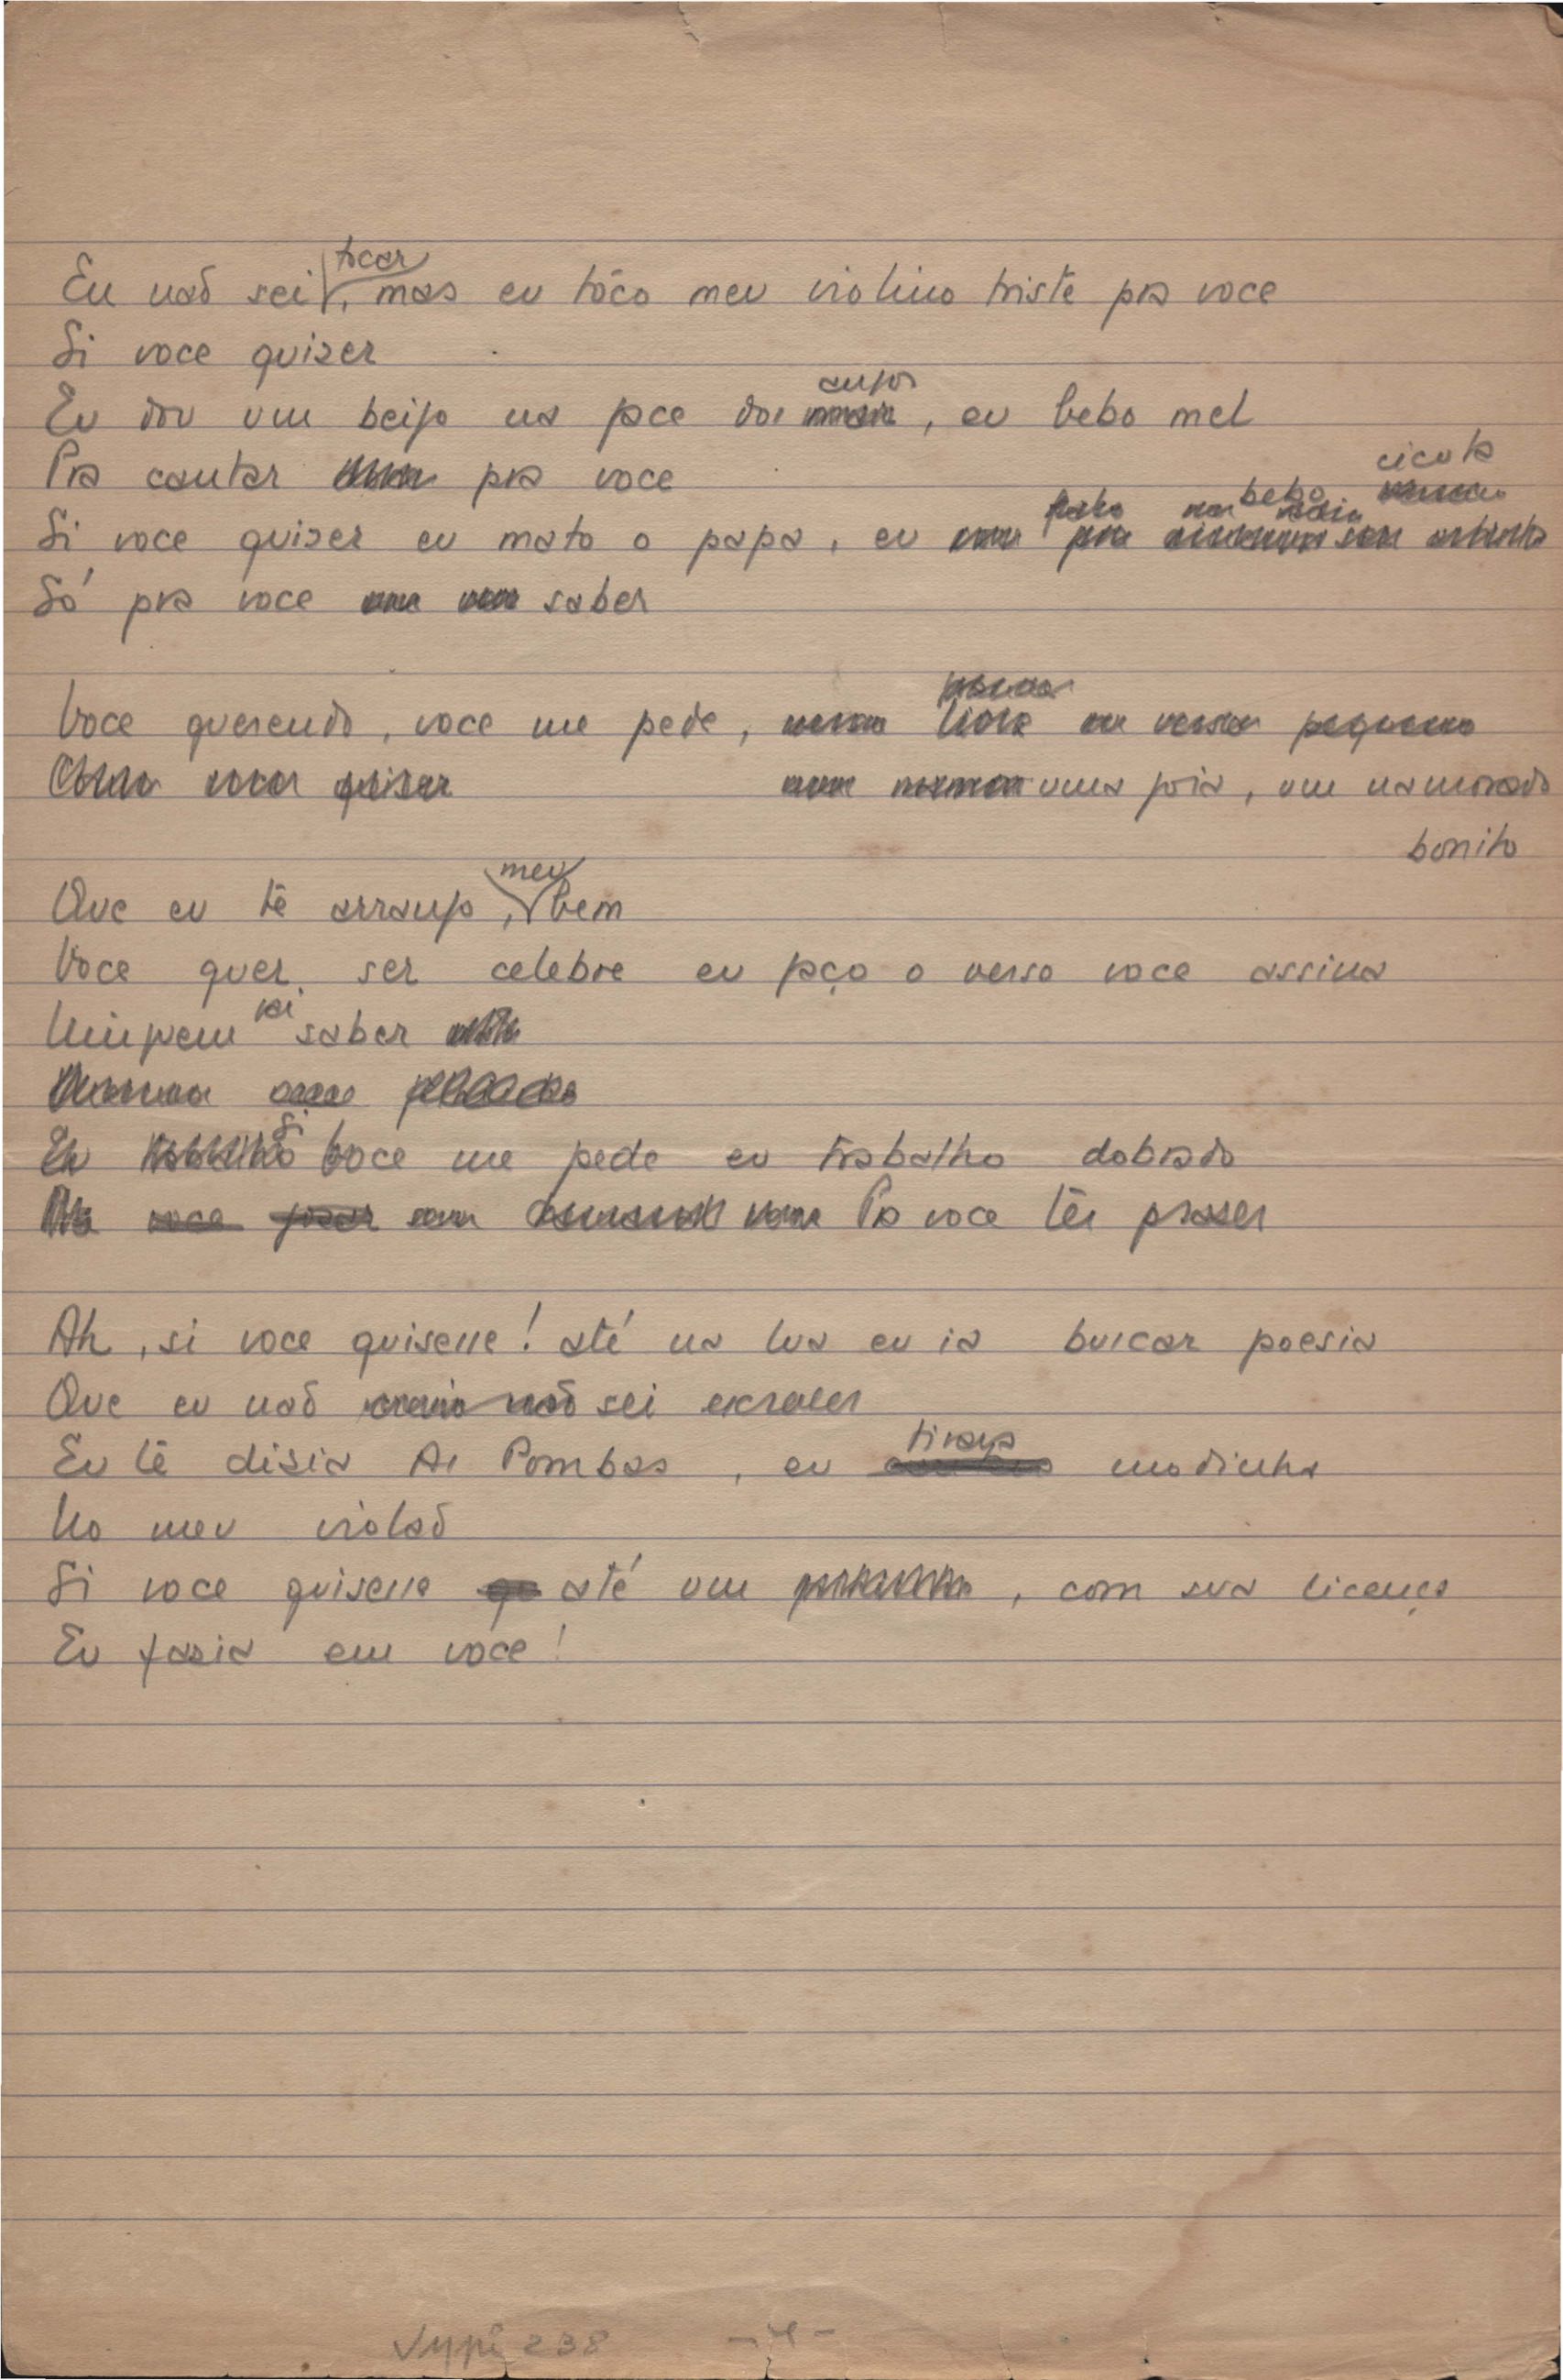 Eu naõ sei tocar, mas eu tóco meu violino triste pra voce
Si voce quizer
Eu dou um beijo na face dos anjos, eu bebo mel
Pra cantar pra voce
Si voce quizer eu mato o papa, eu bebo cicuta
Só pra voce saber
Voce querendo, voce me pede,
uma joia, um namorado
bonito
Que eu tê arranjo, meu bem
Voce quer ser celebre eu faço o verso voce assina
Ninguem vai saber
Si voce me pede eu trabalho dobrado
Pra voce têr praser
Ah, si voce quisesse! até na lua eu ia buscar poesia
Que eu naõ sei escrever
Eu tê disia As Pombas, eu tirava modinha
No meu violaõ
Si voce quisesse até um, com sua licença
Eu fasia em voce!
238